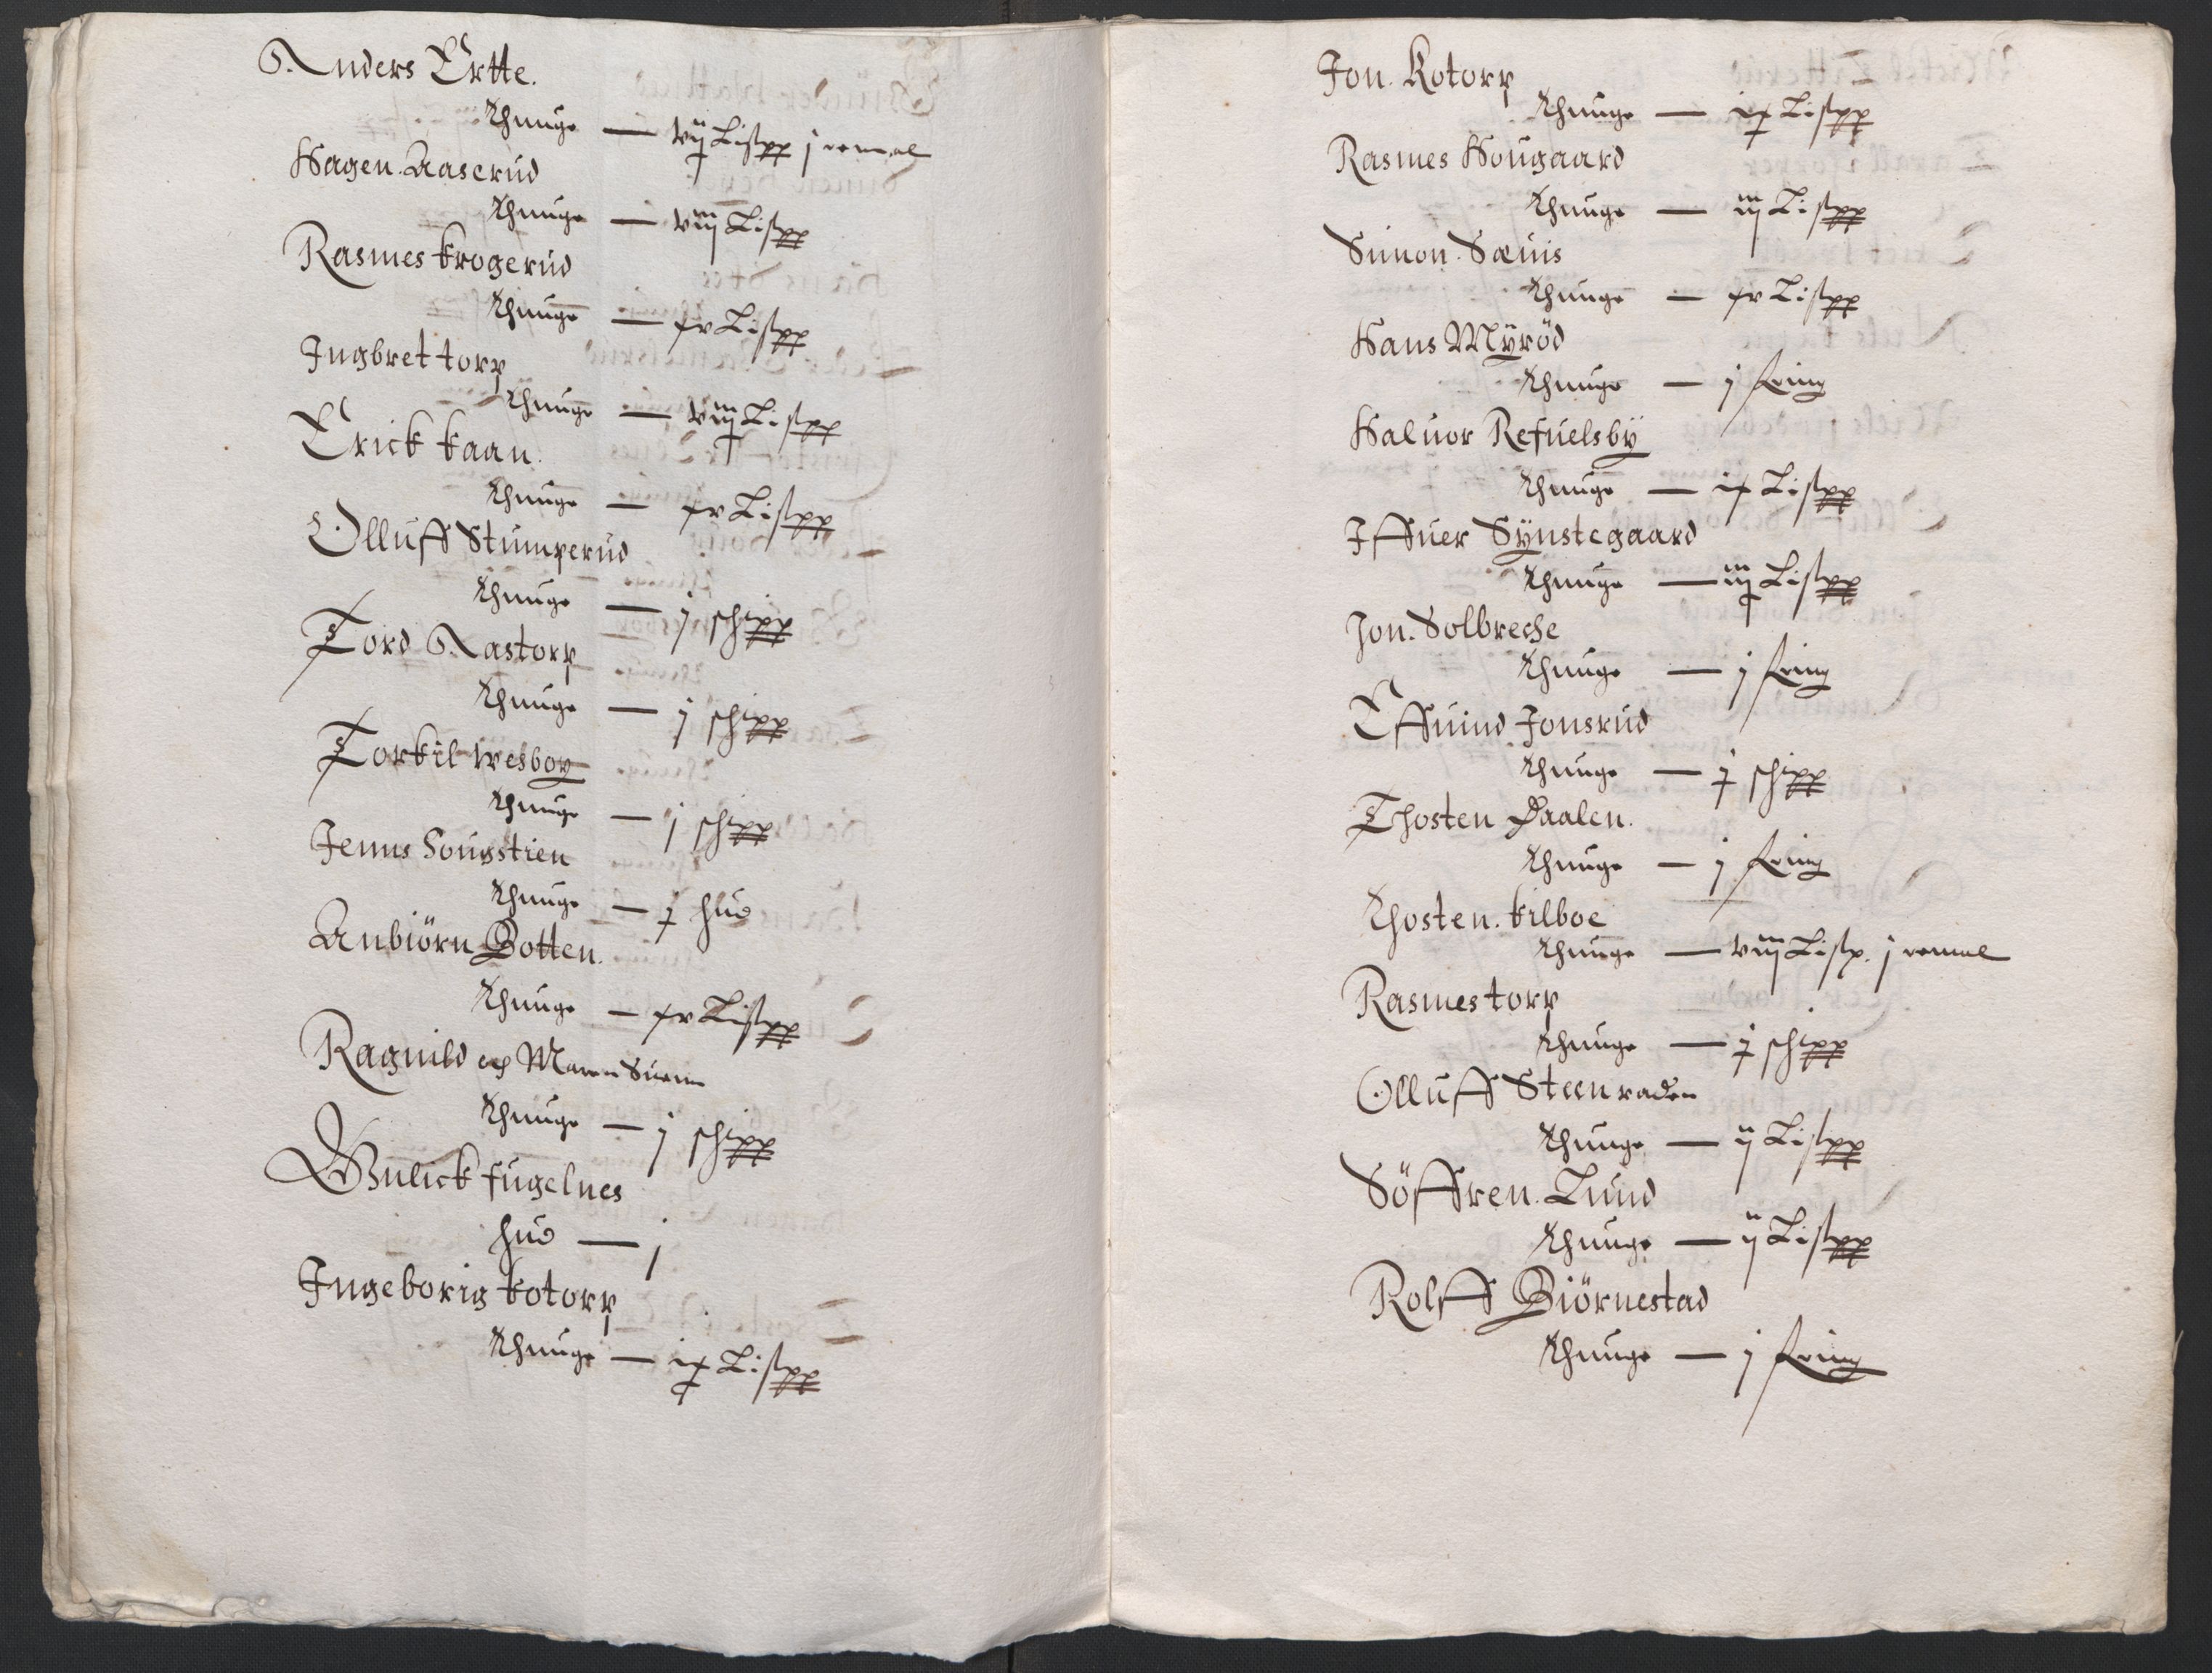 Anders Ertte.
Thunge — vij Lispp j remal
Hagen Aaserud
Thunge — viij Lispp
Rasmes krogerud
Thunge — xv Lispp
Ingbret torp
Thunge — viij Lispp
Erick kaan.
Thunge — xv Lispp
Olluff Stumperud
Thunge — j schipp
Tord Rastorp
Thunge — j schipp
Torkil wesboy
Thunge — j schipp
Jenns
Thunge — j hud
Anbiörn Botten.
Thunge — xv Lispp
Ragnild och Maren
Thunge — j schipp
Gunlick fugelnes
hud — j
Ingeborig kotorp
Thunge — ix Lispp
Jon. Kotorp
Thunge — ix Lispp
Rasmes Hougaard
Thunge — iij Lispp
Simon. Sæuis
Thunge — xv Lispp
Hans Myröd
Thunge — j
Haluor Refuelsby
Thunge — ix Lispp
Iffuer Synstegaard
Thunge — iij Lispp
Jon. Solbreche
Thunge — j
Effuind Jonsrud
Thunge — j schipp
Thosten Daalen.
Thunge — j
Thosten. kilboe
Thunge — viij Lisp. j remal
Rasmes torp
Thunge — j schipp
Olluff Steenraden
Thunge — ij Lispp
Söffren. Lund
Thunge — ij Lispp
Rolff Biörnestad
Thunge — j